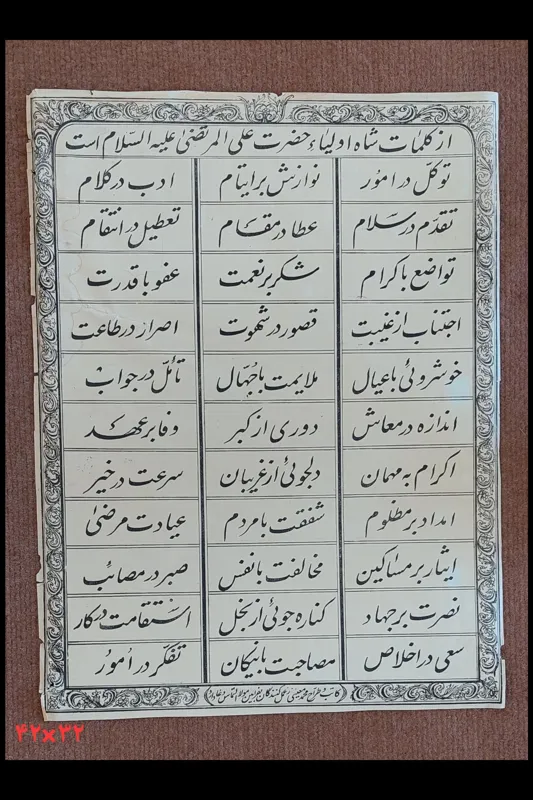 از کلمات شاه اولیاء حضرت علی المرتضیٰ علیه السّلام است
توکّل در امُور نوازش بر ایتام ادب در کلام
تقدّم در سَلام عطا در مقام تعطیل در انتقام
تواضع با کرام شکر بر نعمت عفو با قدرت
اجتناب از غیبت قصور در شهوت اصرار در طاعت
خوشروئی با عیال ملایمت با جُهّال تأمّل در جواب
اندازه در معاش دوری از کبر وفا بر عهد
اکرام به مهمان دلجوئی از غریبان سرعت در خیر
امداد بر مظلوم شفقت با مردم عیادت مرضیٰ
ایثار بر مساکین مخالفت با نفس صبر در مصائب
نصرت بر جهاد کناره جوئی از بخل استقامت در کار
سعی در اخلاص مصاحبت با نیکان تفکّر در اُمورُ
۴۲x۳۲